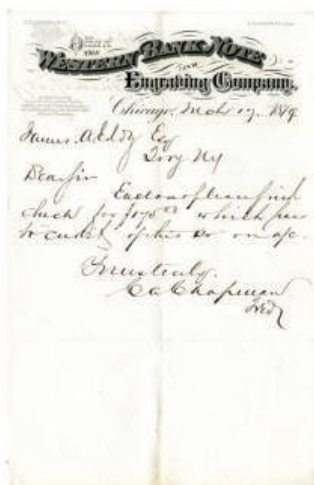 Office of
THE
WESTERN BANK NOTE
AND
Engraving Company.
Chicago, 1879
James A Eddy Esq
Troy NY
Dear Sir
Enclosed please find
check for which pass
to credit of this Co on a/c.
Yours truly,
C C Chapman